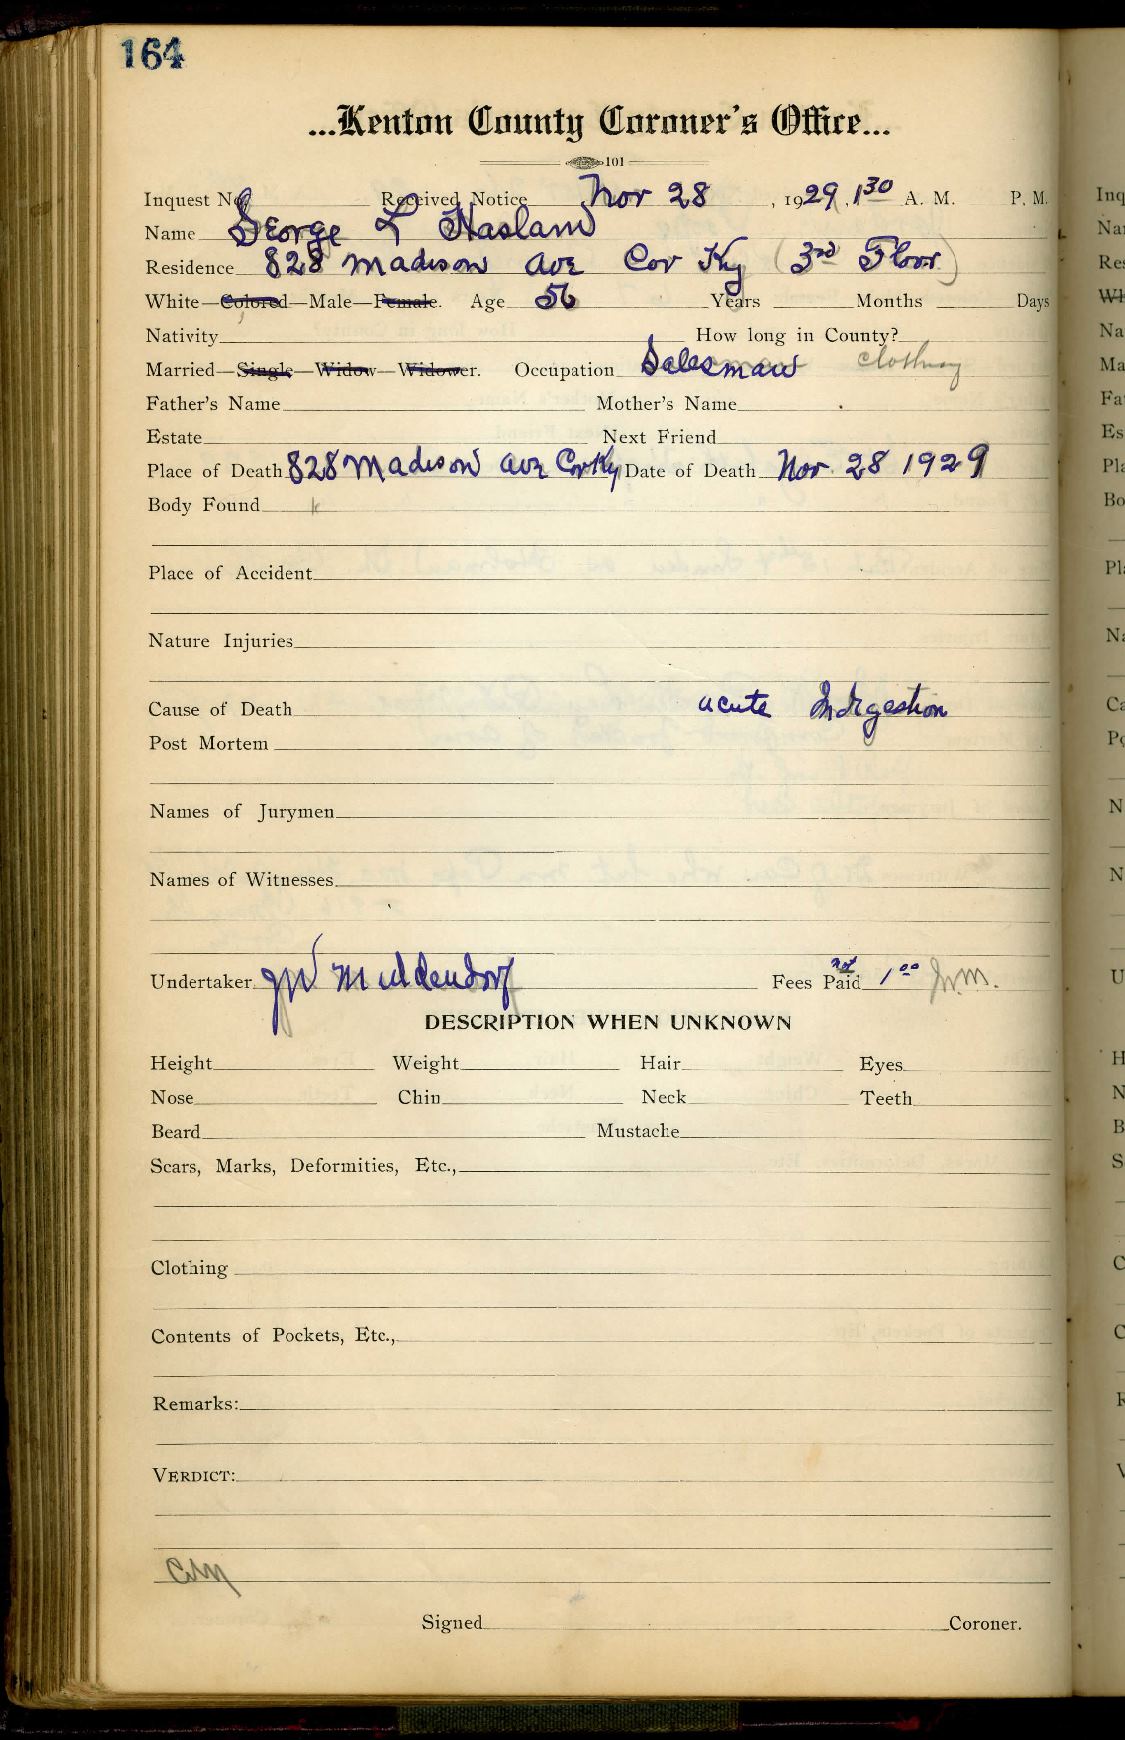 164
...Kenton County Coroner's Office...
101
Inquest No Received Notice Nov 28, 1929, 1 30 A. M. P. M.
Name George L Haslam
Residence 828 Madison Ave Cov Ky (3rd Floor)
White—Colored—Male—Female. Age 56 Years Months Days
Nativity How long in County?
Married—Single—Widow—Widower. Occupation Salesman clothing
Father's Name Mother's Name
Estate Next Friend
Place of Death 828 Madison Ave Cov Ky Date of Death Nov. 28 1929
Body Found
Place of Accident
Nature Injuries
Cause of Death acute Indigestion
Post Mortem
Names of Jurymen
Names of Witnesses
Undertaker JW Middendorf Fees not Paid 1 00 J.W.M.
DESCRIPTION WHEN UNKNOWN
Height Weight Hair Eyes
Nose Chin Neck Teeth
Beard Mustache
Scars, Marks, Deformities, Etc.,
Clothing
Contents of Pockets, Etc.,
Remarks:
VERDICT:
Signed Coroner.